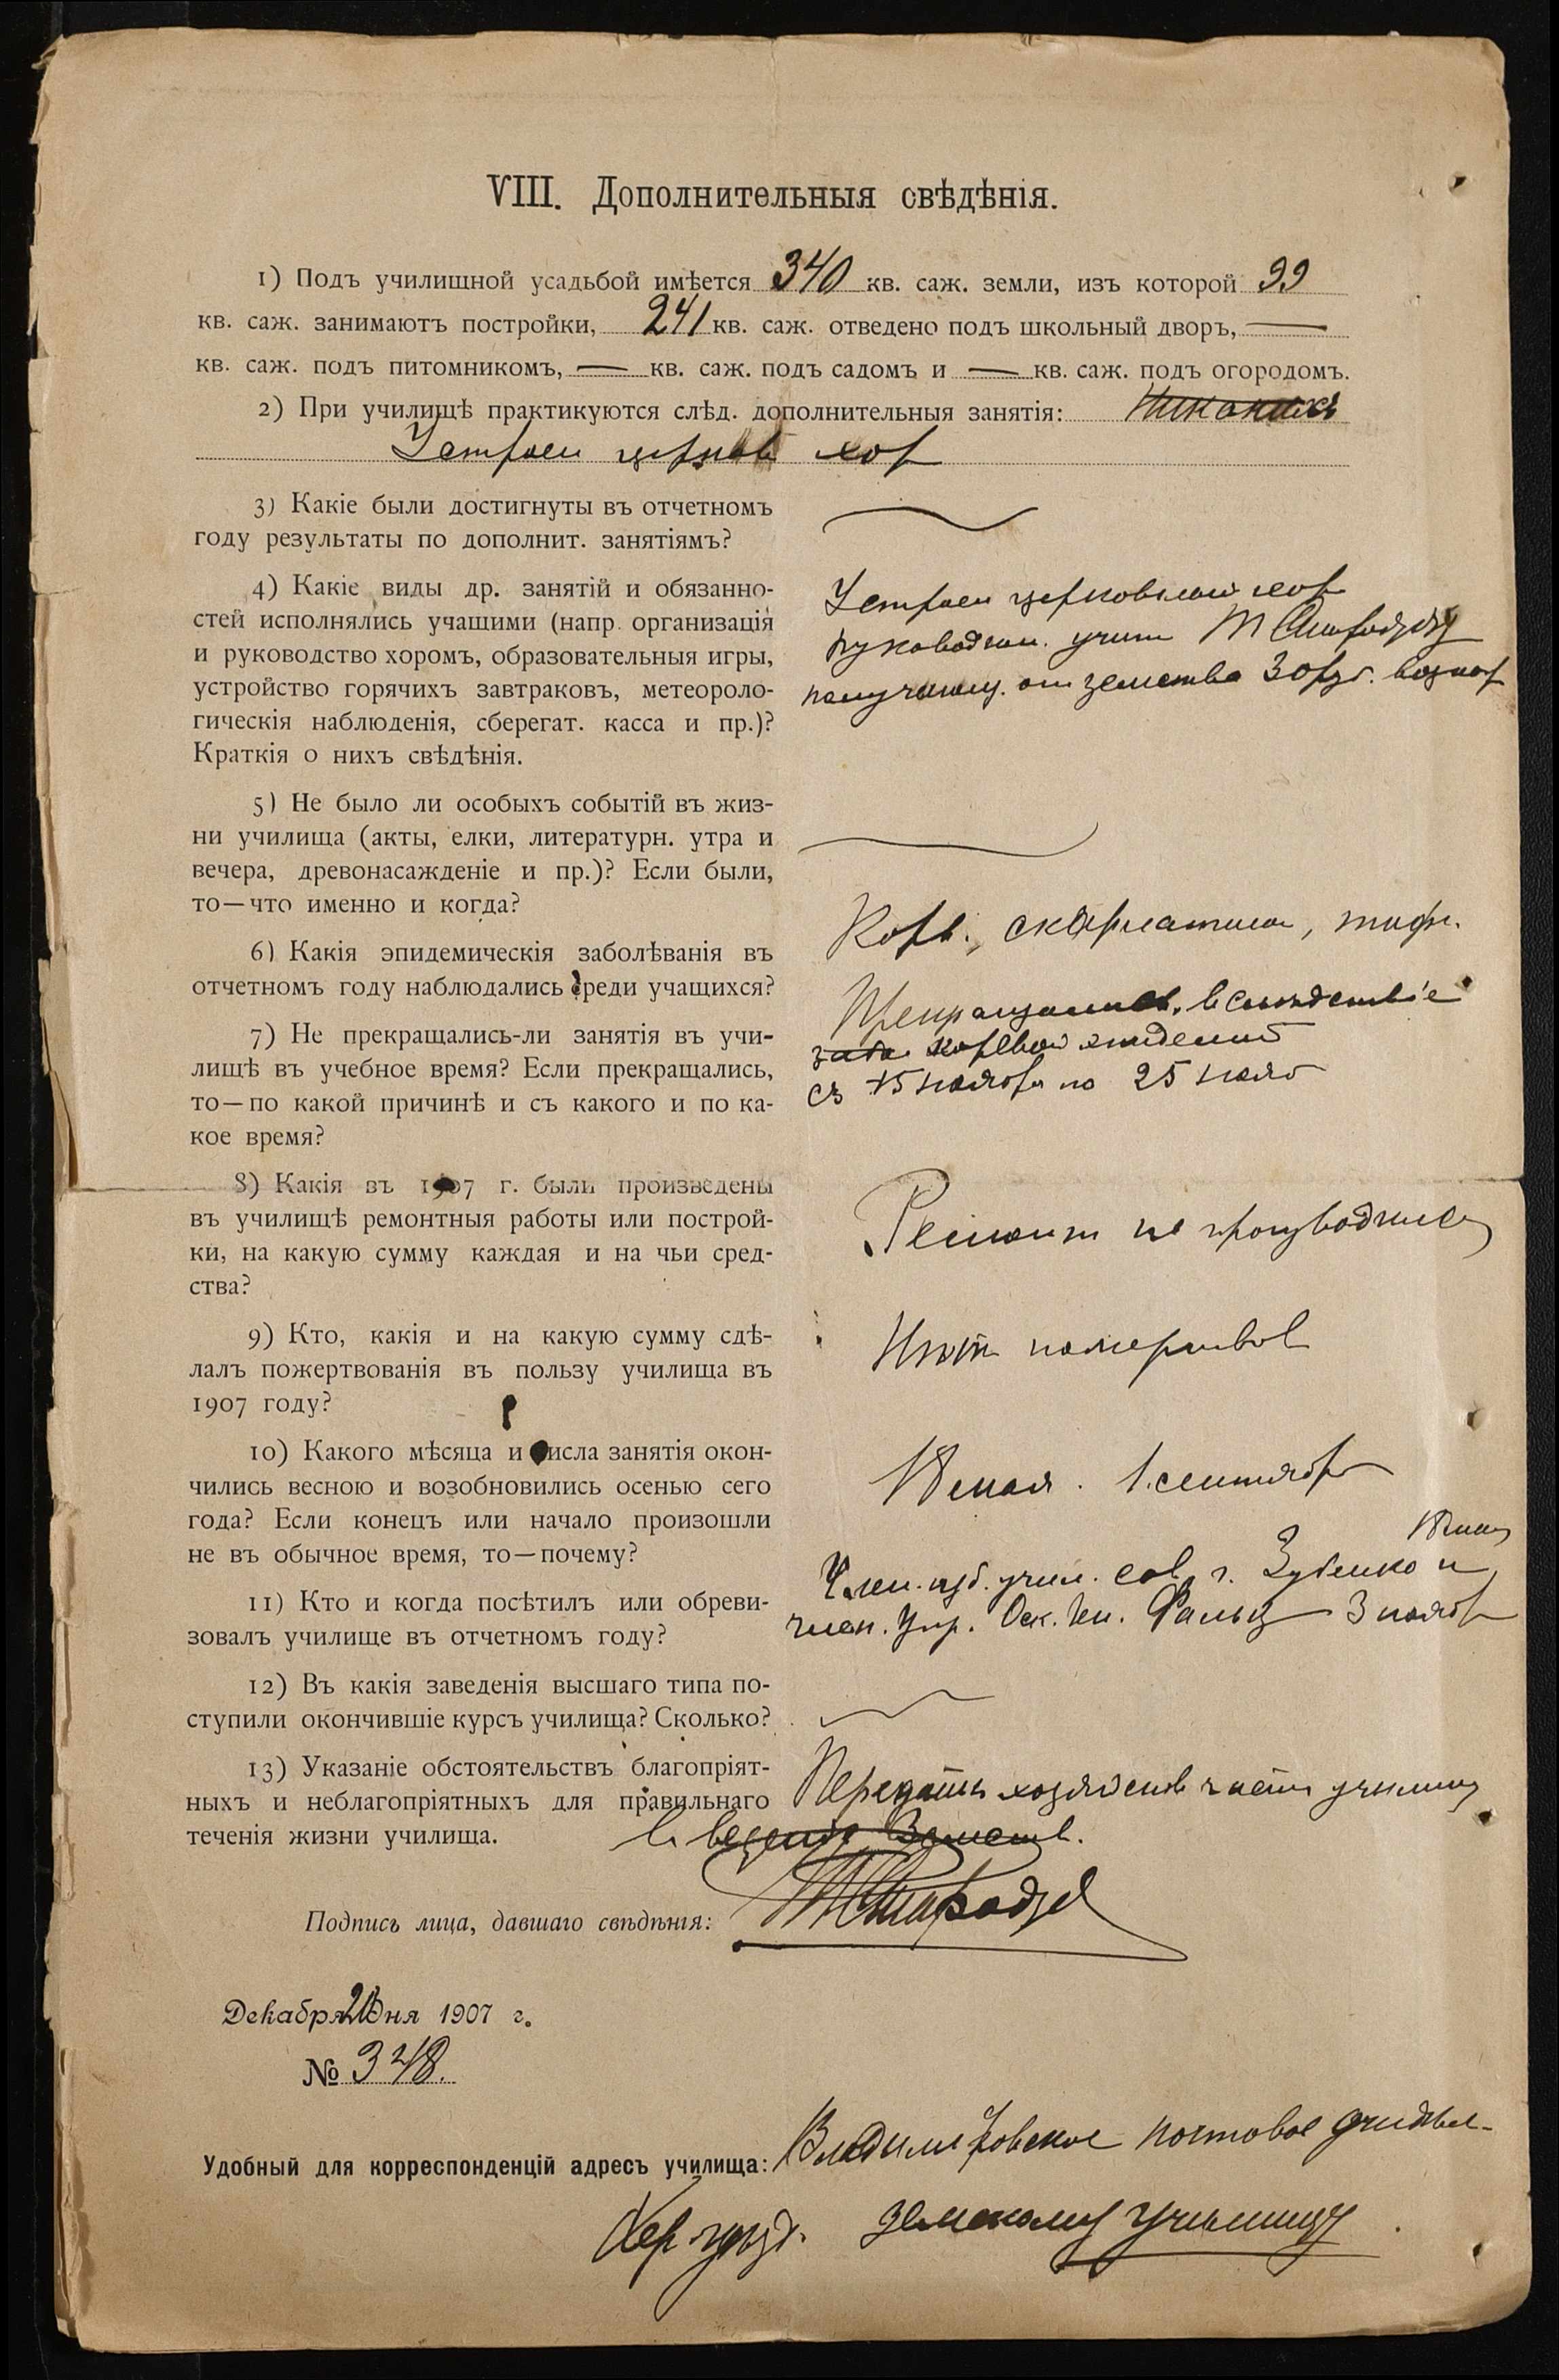 VIII. Дополнительныя свѣдѣнія.
1) Подъ училищной усадьбой имѣется 340 кв. саж. земли, изъ которой 99
кв. саж. занимаютъ постройки, 241 кв. саж. отведено подъ школьный дворъ, —
кв. саж. подъ питомникомъ, — кв. саж. подъ садомъ и — кв. саж. подъ огородомъ.
2) При училищѣ практикуются слѣд. дополнительныя занятія: Никакихъ
Устроен церков хор
3) Какіе были достигнуты въ отчетномъ
году результаты по дополнит. занятіямъ?
4) Какіе виды др. занятій и обязанно-
стей исполнялись учащими (напр. организація
и руководство хоромъ, образовательныя игры,
устройство горячихъ завтраковъ, метеороло-
гическія наблюденія, сберегат. касса и пр.)?
Краткія о нихъ свѣдѣнія.
Устроен церковный хор
руководим. учит
получающ. от земства 30 руб. вознаг
5) Не было ли особыхъ событій въ жиз-
ни училища (акты, елки, литературн. утра и
вечера, древонасажденіе и пр.)? Если были,
то—что именно и когда?
6) Какія эпидемическія заболѣванія въ
отчетномъ году наблюдались среди учащихся?
Корь, скарлатина, тиф.
7) Не прекращались-ли занятія въ учи-
лищѣ въ учебное время? Если прекращались,
то—по какой причинѣ и съ какого и по ка-
кое время?
Прекращались. Вслѣдствіе
коревой эпидеміи
съ 15 ноября по 25 нояб
8) Какія въ 1907 г. были произведены
въ училищѣ ремонтныя работы или построй-
ки, на какую сумму каждая и на чьи сред-
ства?
Ремонт не производился
9) Кто, какія и на какую сумму сдѣ-
лалъ пожертвованія въ пользу училища въ
1907 году?
Нѣт пожертвов
10) Какого мѣсяца и числа занятія окон-
чились весною и возобновились осенью сего
года? Если конецъ или начало произошли
не въ обычное время, то—почему?
мая. 1 сентября
11) Кто и когда посѣтилъ или обреви-
зовалъ училище въ отчетномъ году?
Член. губ. учил. сов. г. Зубенко и
член. Упр. Фальц 3 ноября
12) Въ какія заведенія высшаго типа по-
ступили окончившіе курсъ училища? Сколько?
13) Указаніе обстоятельствъ благопріят-
ныхъ и неблагопріятныхъ для правильнаго
теченія жизни училища.
Передать хозяйств часть училищ
в веденіе Земств.
Подпись лица, давшаго свѣдѣнія:
Декабря 21 дня 1907 г.
№ 348.
Удобный для корреспонденцій адресъ училища: Владимировское почтовое отдѣл-
Хер. уѣзд. Земскому училищу